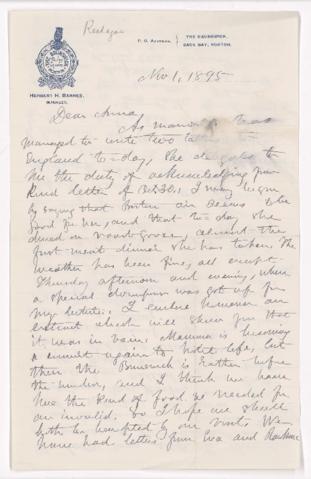 P. O. Address,
THE BRUNSWICK,
BACK BAY, BOSTON.
HERBERT H. BARNES,
MANAGER.
Nov 1, 1895
Dear Anna,
As mamma has
managed to write two
England to-day, she
me the duty of acknowledging your
kind letter of
by saying that Boston air seems to be
good for her, and that to-day she
dined on roast goose, almost the
first meat dinner she has taken. The
weather has been fine, all except
Thursday afternoon and evening, when
a special downpour was got up for
my lecture. I enclose however an
extract which will show you that
it was in vain. Mamma is becoming
a convert again to hotel life, but
then the Brunswick is rather before
the Windsor, and I think we have
here the kind of food as needed for
an invalid. So I hope we shall
both be benefited by our visit. We
have had letters from Eva and